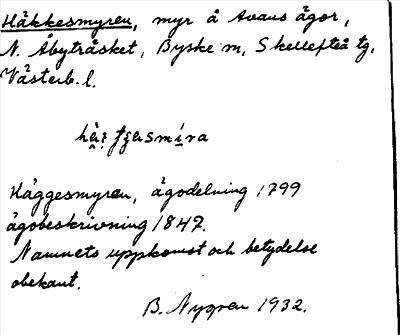 Häkkesmyren, myr å Avans ägor,
N. Åbyträsket, Byske m, Skellefteå tg,
Västerb. l.
Häggesmyren, ägodelning 1799
ägobeskrivning 1847.
Namnets uppkomst och betydelse
obekant.
B. Nygren 1932.